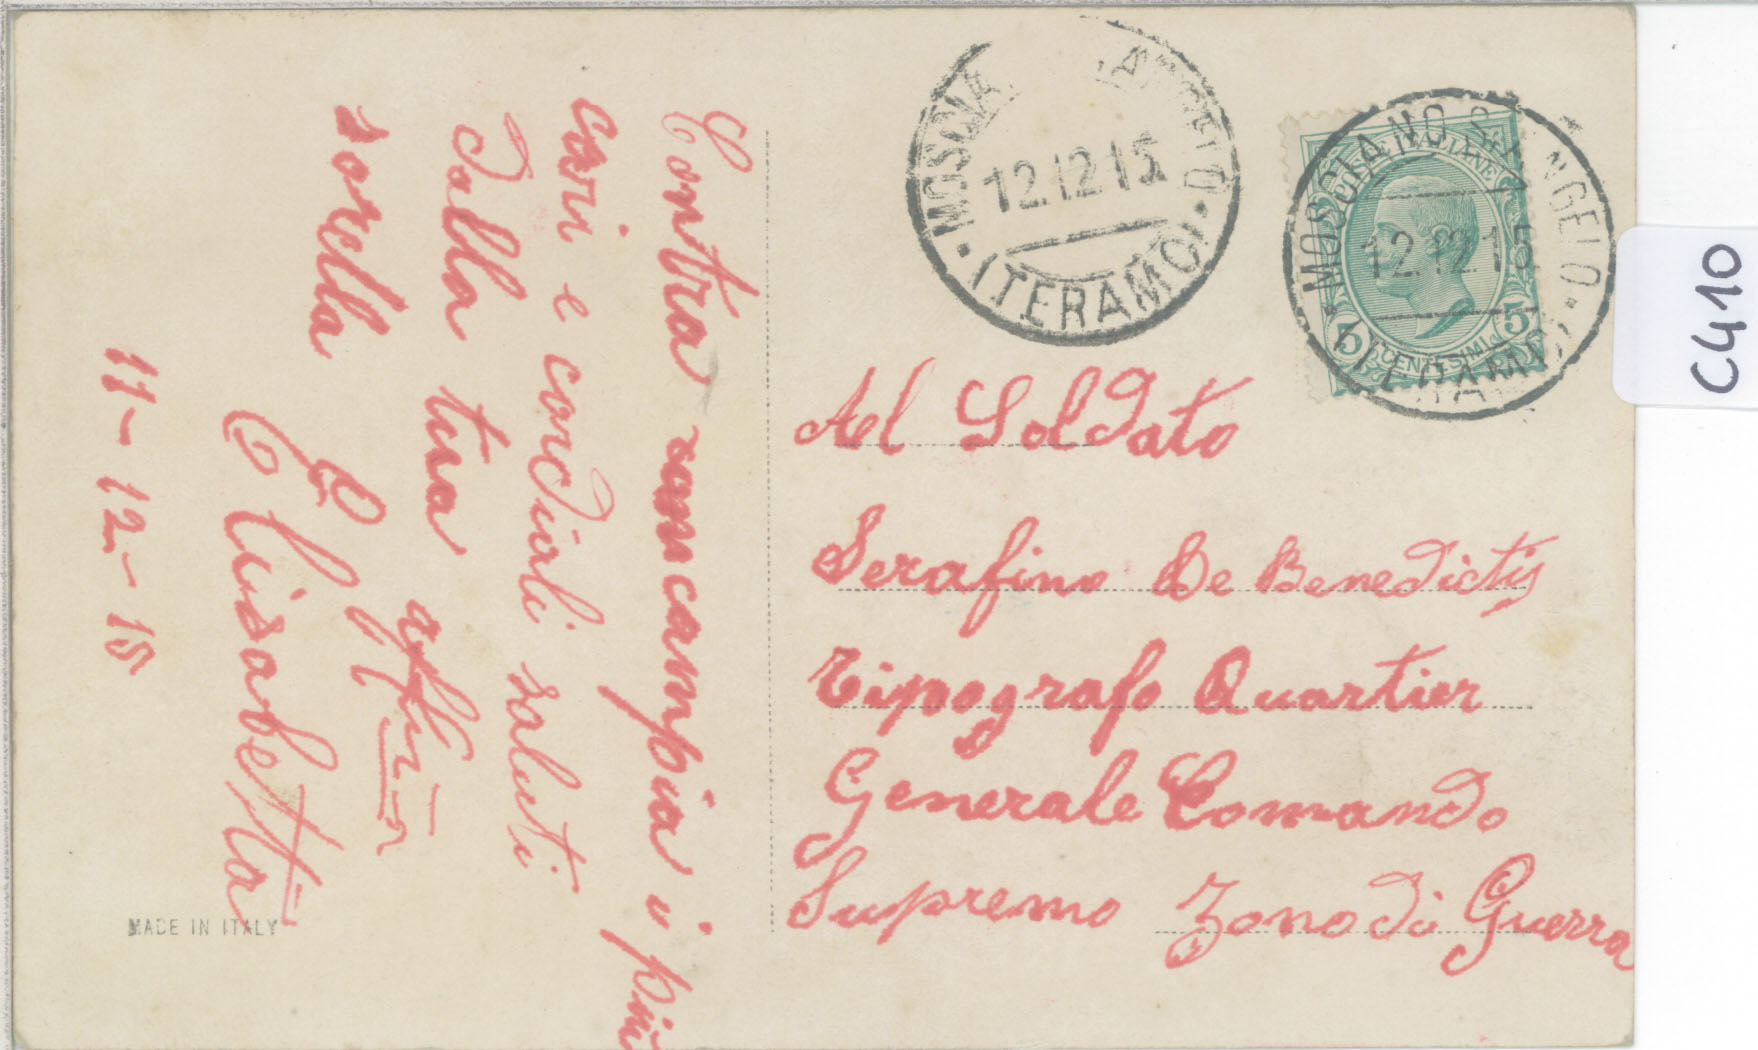 Contra concampia i più
cari e cordiali saluti
dalla tua affma
sorella
Elisabetta
11-12-15
MADE IN ITALY
MOSCIA ANGELO
12.12.15
(TERAMO)
MOSCIANO S. ANGELO
12.12.15
(TERAMO)
POSTE ITALIANE
5 CENTESIMI 5
Ael Soldato
Serafino De Benedictis
Tipografo Quartier
Generale Comando
Supremo Zona di Guerra
C410